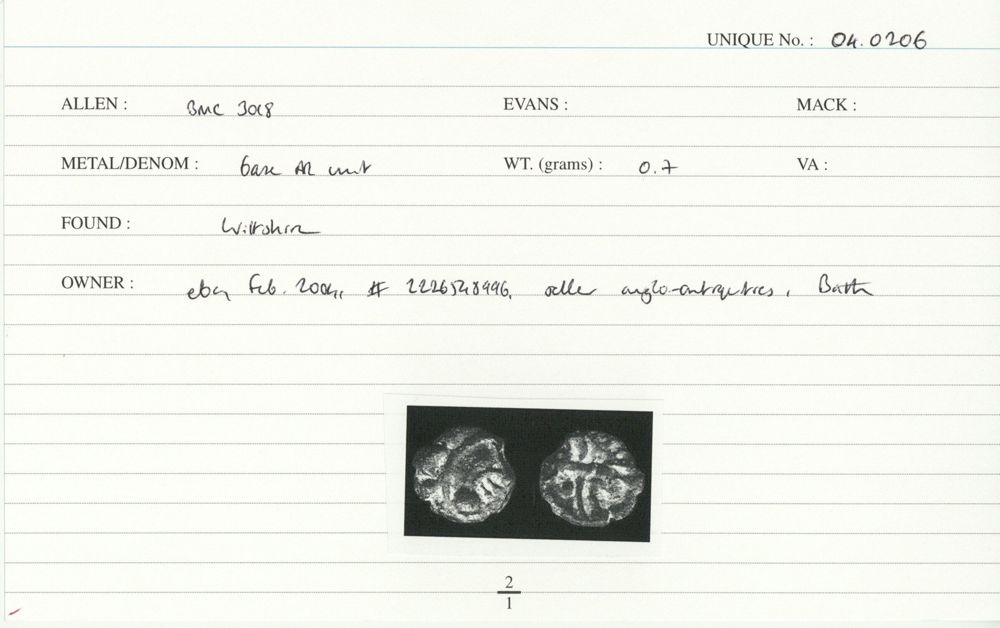 UNIQUE No. : 04.0206
ALLEN : BMC 3018 EVANS : MACK :
METAL/DENOM : base AR unit WT. (grams) : 0.7 VA :
FOUND : Wiltshire
OWNER : ebay Feb. 2004, # 2226548996, seller anglo-antiquities, Bath
2
1